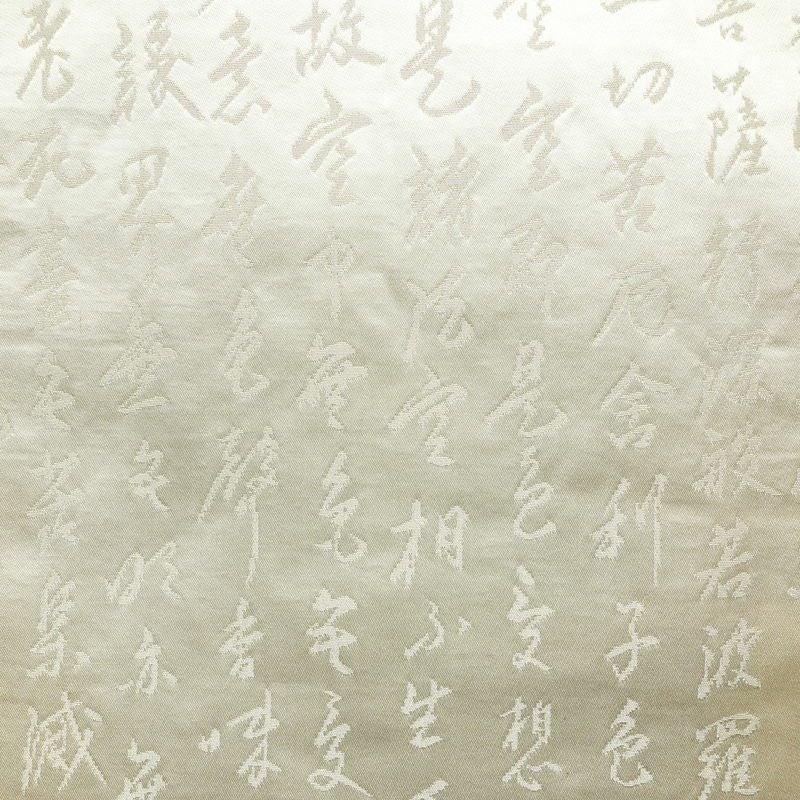 菩薩行深般若波羅
一切苦厄舍利子色
空空即是色受想
是諸法空相不生不
故空中無色無受
意無色聲香味
識界無無明亦無
老死盡無苦集滅